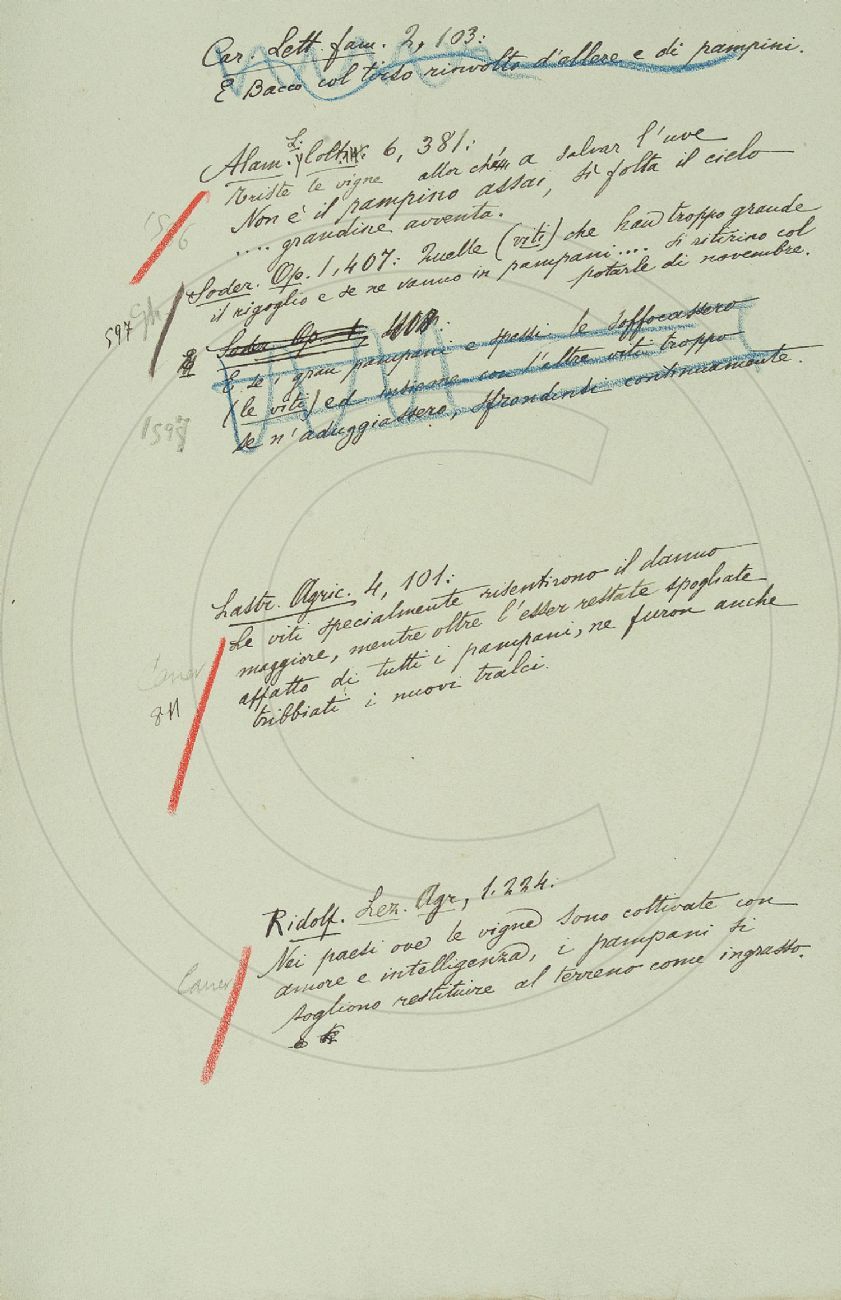 Car. Lett. fam. 2, 103:
E Bacco col tirso rinvolto d'ellere e di pampini.
Alam. L. Colt. 6, 381:
Triste le vigne allor che a salvar l'uve
Non è il pampino assai, sì folta il cielo
.... grandine avventa.
1596
Soder. Op. 1, 407: Quelle (viti) che han troppo grande
il rigoglio e se ne vanno in pampani.... si ritirino col
potarle di novembre.
597
Soder. Op. 1, 408:
E se i gran pampani e spessi le soffocassero
(le viti) ed insieme con l'altre viti troppo
se n'aduggiassero, sfrondinsi continuamente.
1597
Lastr. Agric. 4, 101:
Le viti specialmente risentirono il danno
maggiore, mentre oltre l'esser restate spogliate
affatto di tutti i pampani, ne furon anche
tribbiati i nuovi tralci.
Ridolf. Lez. Agr, 1.224.
Nei paesi ove le vigne sono coltivate con
amore e intelligenza, i pampani si
sogliono restituire al terreno come ingrasso.